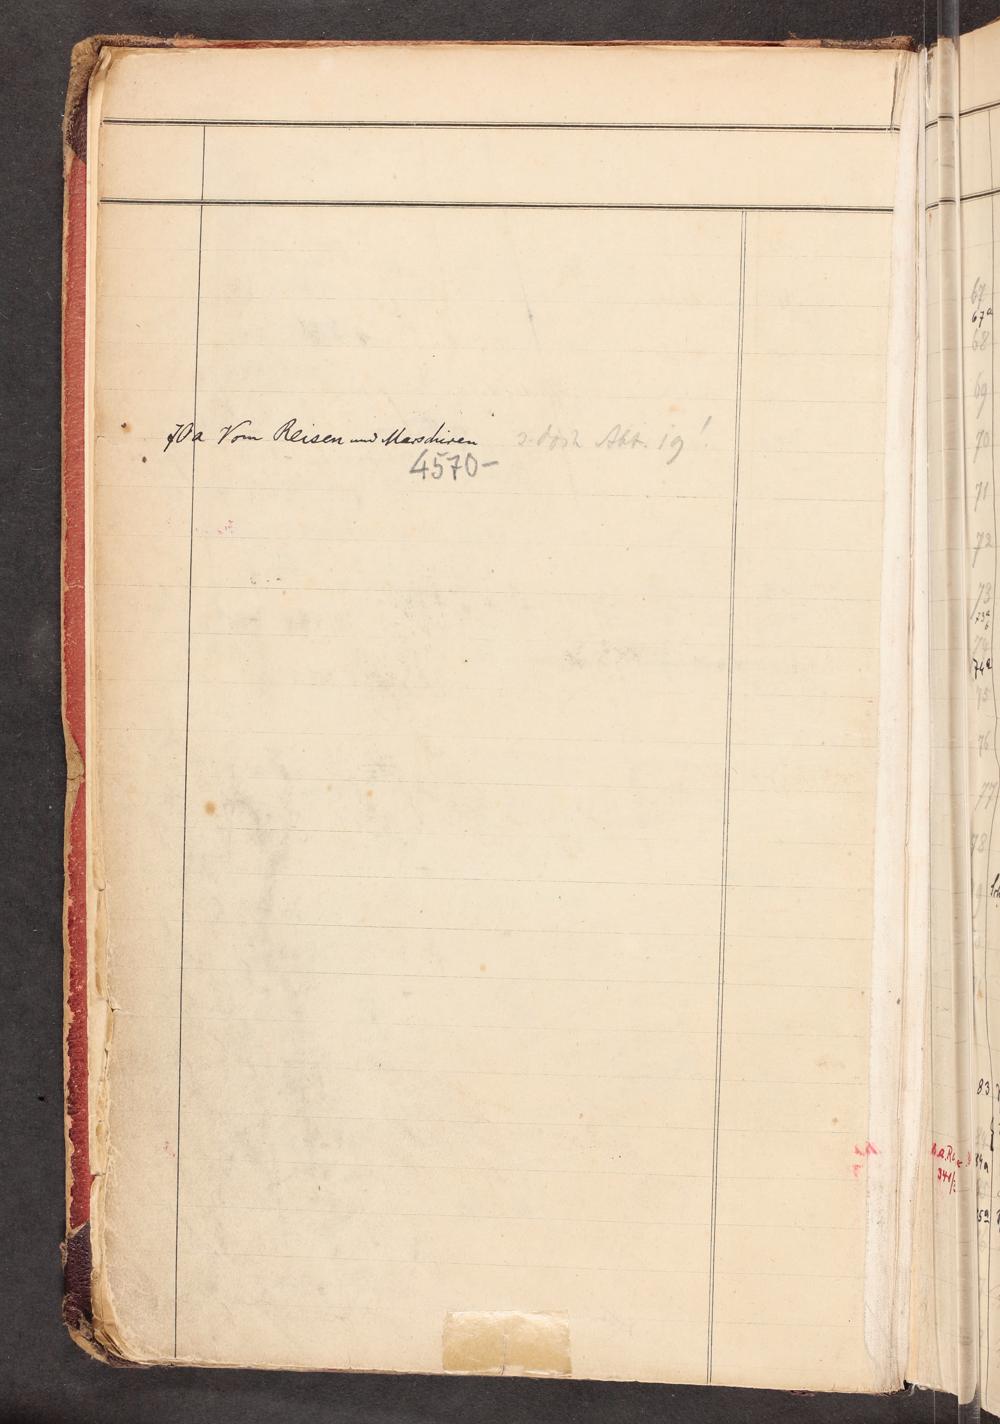 70a Vom Reisen und Marschiren s. dort Abt. 19!
4570-
67
67a
68
69
70
71
72
73
73a
74
74a
75
76
77
78
83
84a
85a